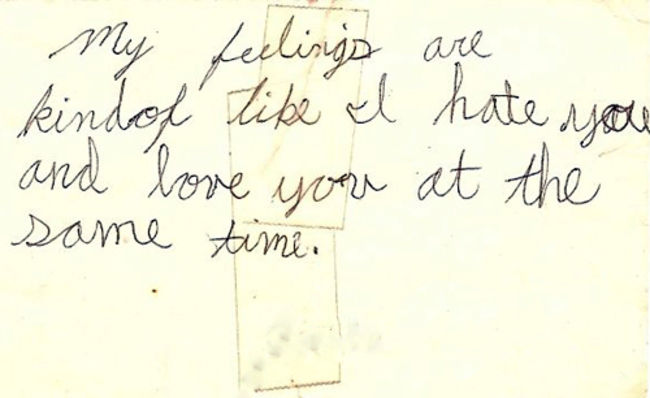 My feelings are
kindof like I hate you
and love you at the
same time.